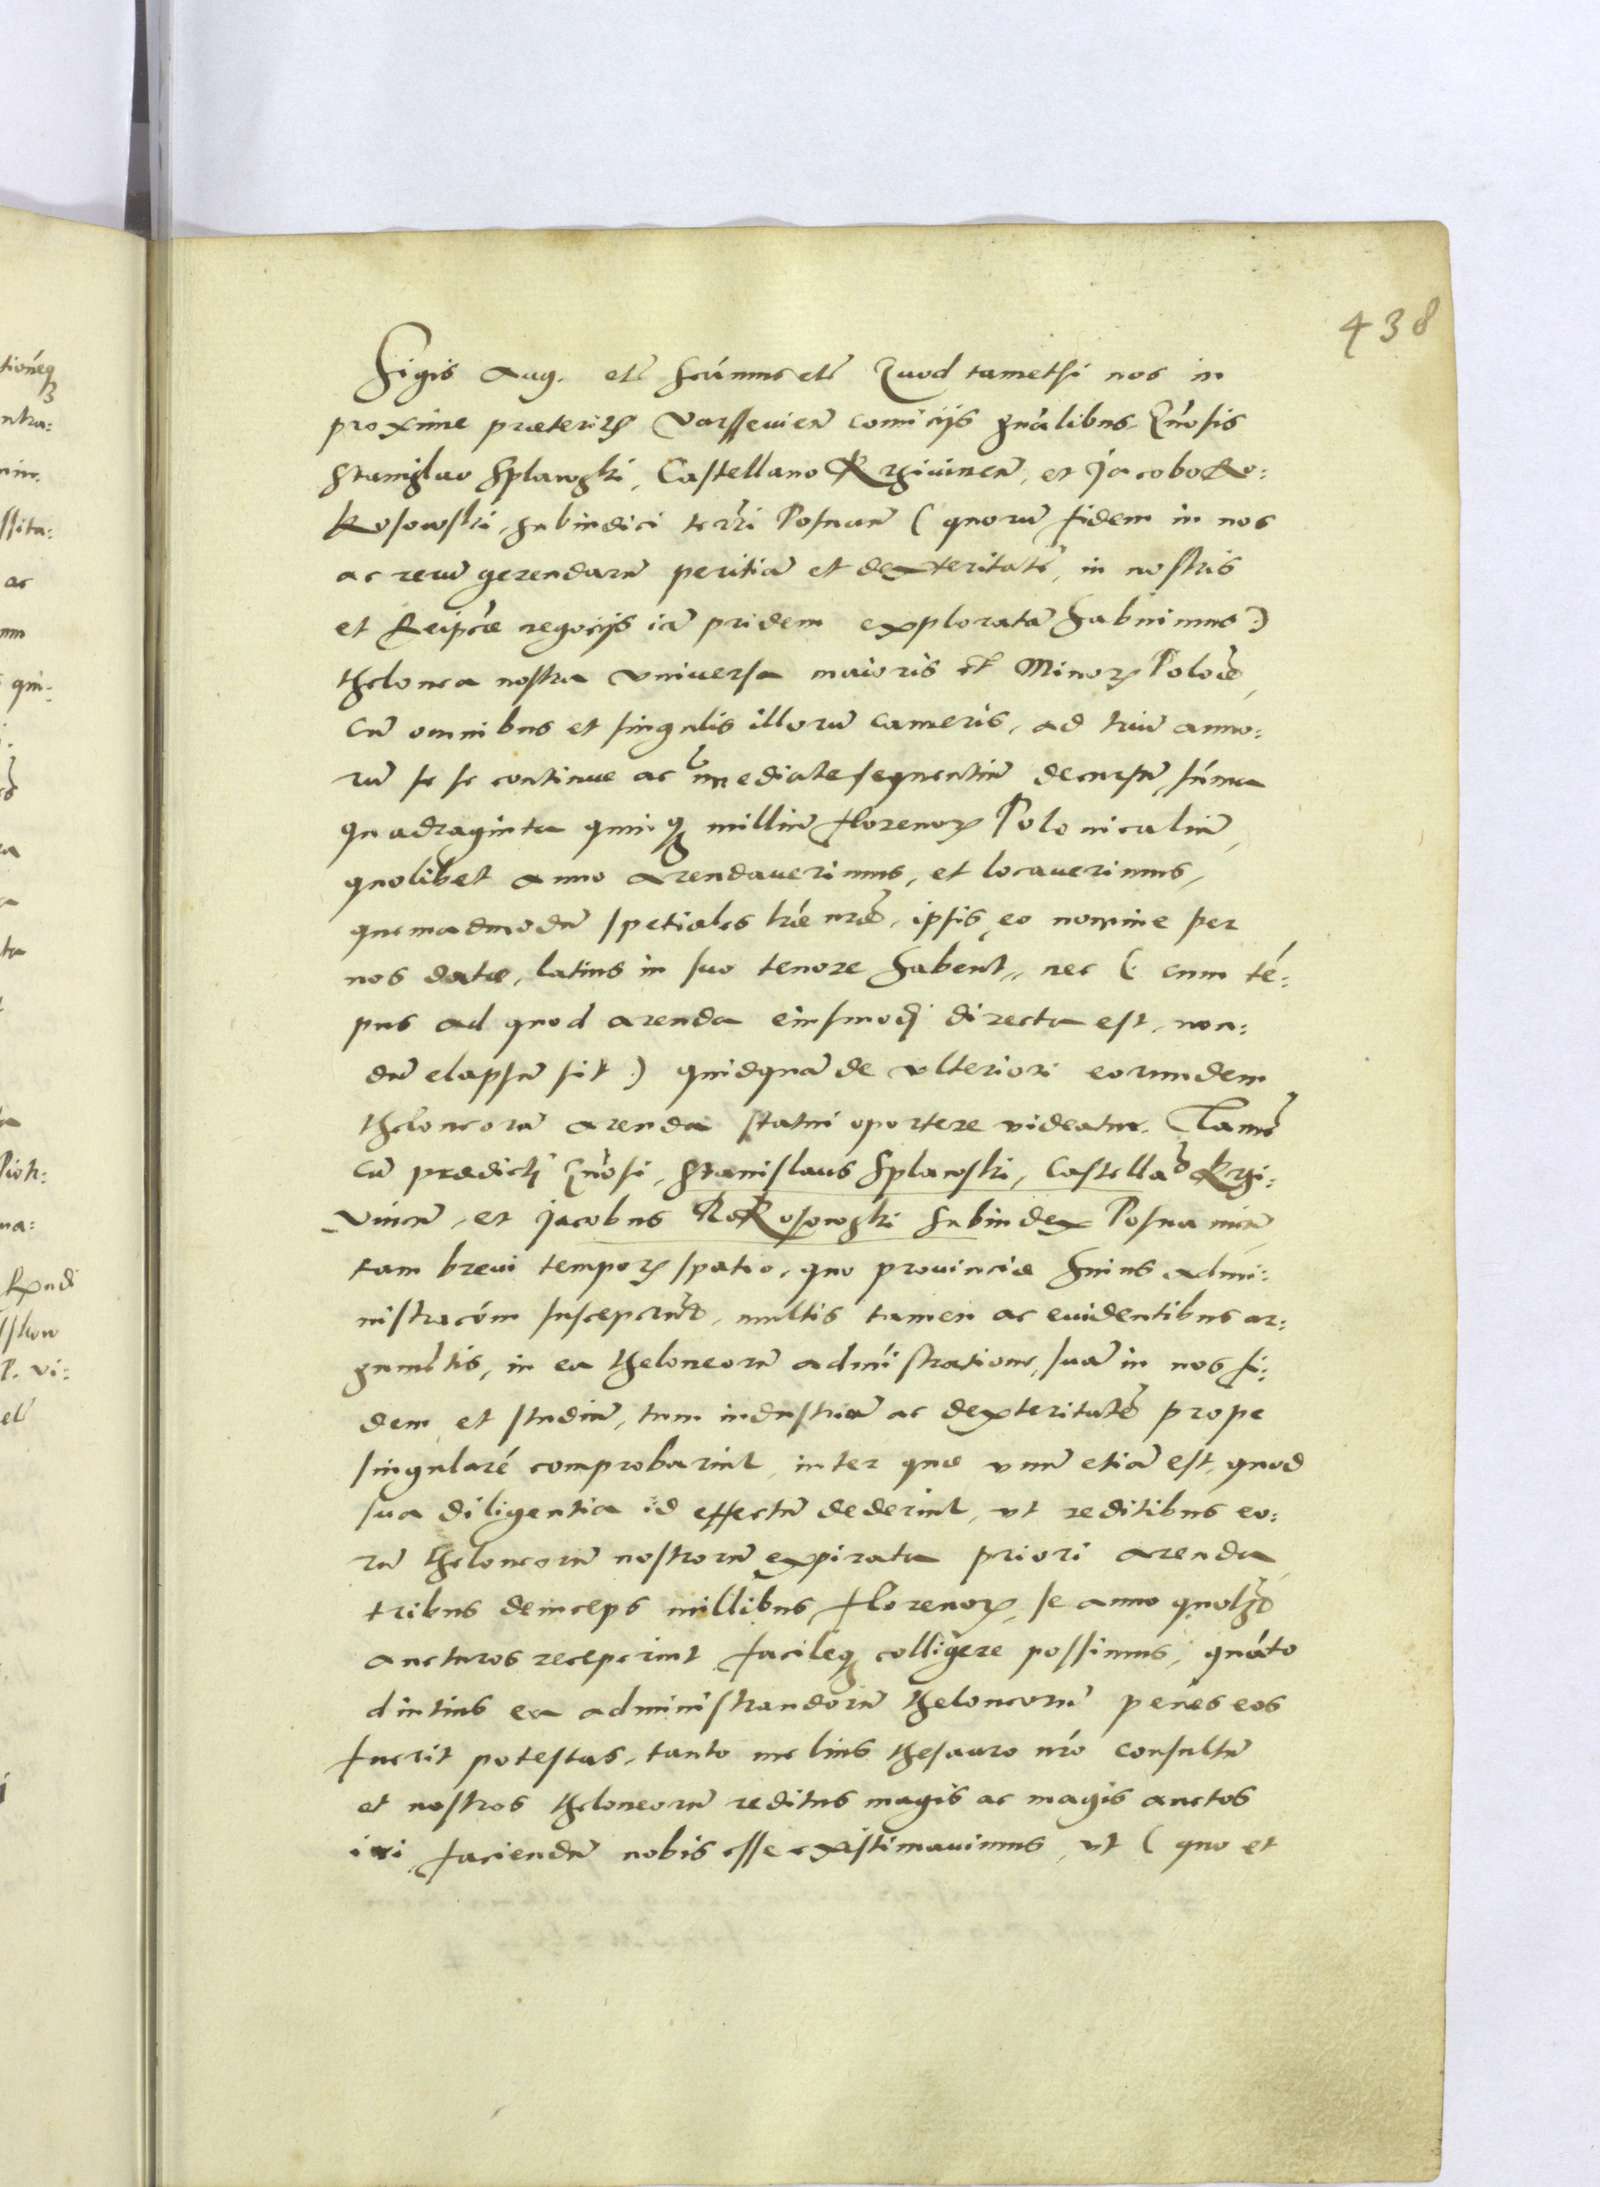 438
Sigis Aug. etc̄ Scimus etc̄ Quod tametsi nos in
proxime præteritꝫ Varsseuien̄ comicijs gn̄alibus, Gn̄osis
Stanislao Splawski, Castellano Krziuinen̄, et Jacobo Ro:
kosowski, Subiudici terr̄i Posnan̄ ( quorū fidem in nos
ac rerū gerendarū peritiā et dexteritatē, in nostris
et Reipcæ negocijs iā pridem exploratā habuimus)
thelonea nostra vniuersa maioris et Minorꝫ Polōiæ,
cū omnibus et singulis illorū cameris, ad triū anno:
rū se se continue ac im̄ediate sequentiū decursū, sūma
quadraginta quinqꝫ milliū florenorꝫ Polonicaliū,
quolibet anno arendauerimus, et locauerimus,
quemadmodū spetiales lr̄æ nr̄æ, ipsis eo nomine per
nos datæ, latius in suo tenore habent, nec (: cum tē:
pus ad quod arenda eiusmodi directa est, non:
dū elapsū sit ) quidquā de vlteriori eorumdem
theloneorū arenda statui oportere videatur. Tamē
cū prædicti Gn̄osi, Stanislaus Splawski, Castellaō Krzi:
vinen̄, et Jacobus RoKosowski Subiudex Posnanien̄
tam breui temporꝫ spatio, quo prouinciæ huius admi:
nistracōm susceperūt, multis tamen ac euidentibus ar:
gumētis, in ea theloneorū admīstratione, suā in nos fi:
dem et studiū, tum industriā ac dexteritatē prope
singularē comprobarint, inter quæ vnū etiā est, quod
sua diligentia id effectū dederint, vt reditibus eo:
rū theloneorū nostrorū expirata priori arenda
tribus deinceps millibus florenorꝫ, se anno quolꝫt
aucturos receperint facileqꝫ colligere possimus, quāto
diutius ea administrandorū theloneorū penes eos
fuerit potestas, tanto melius thesauro nr̄o consultū
et nostros theloneorū reditus magis ac magis auctos
iri faciendū nobis esse existimauimus, vt ( quo et